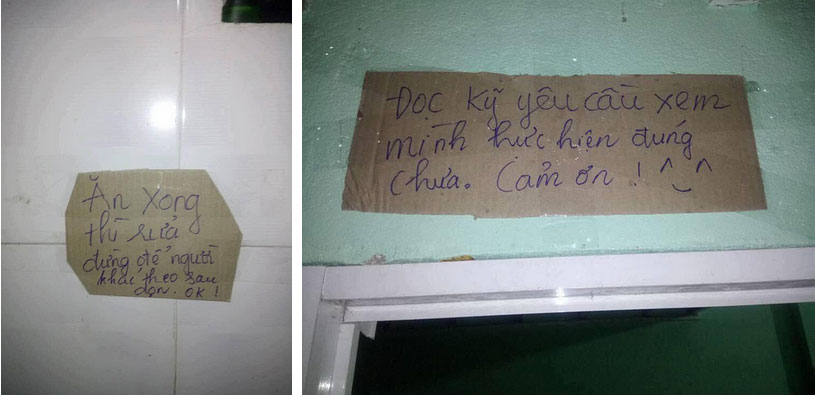 Ăn xong
thì rửa
đừng để người
khác theo sau
dọn. OK!
Đọc kỹ yêu cầu xem
mình thực hiện đúng
chưa. Cảm ơn! ^‿^